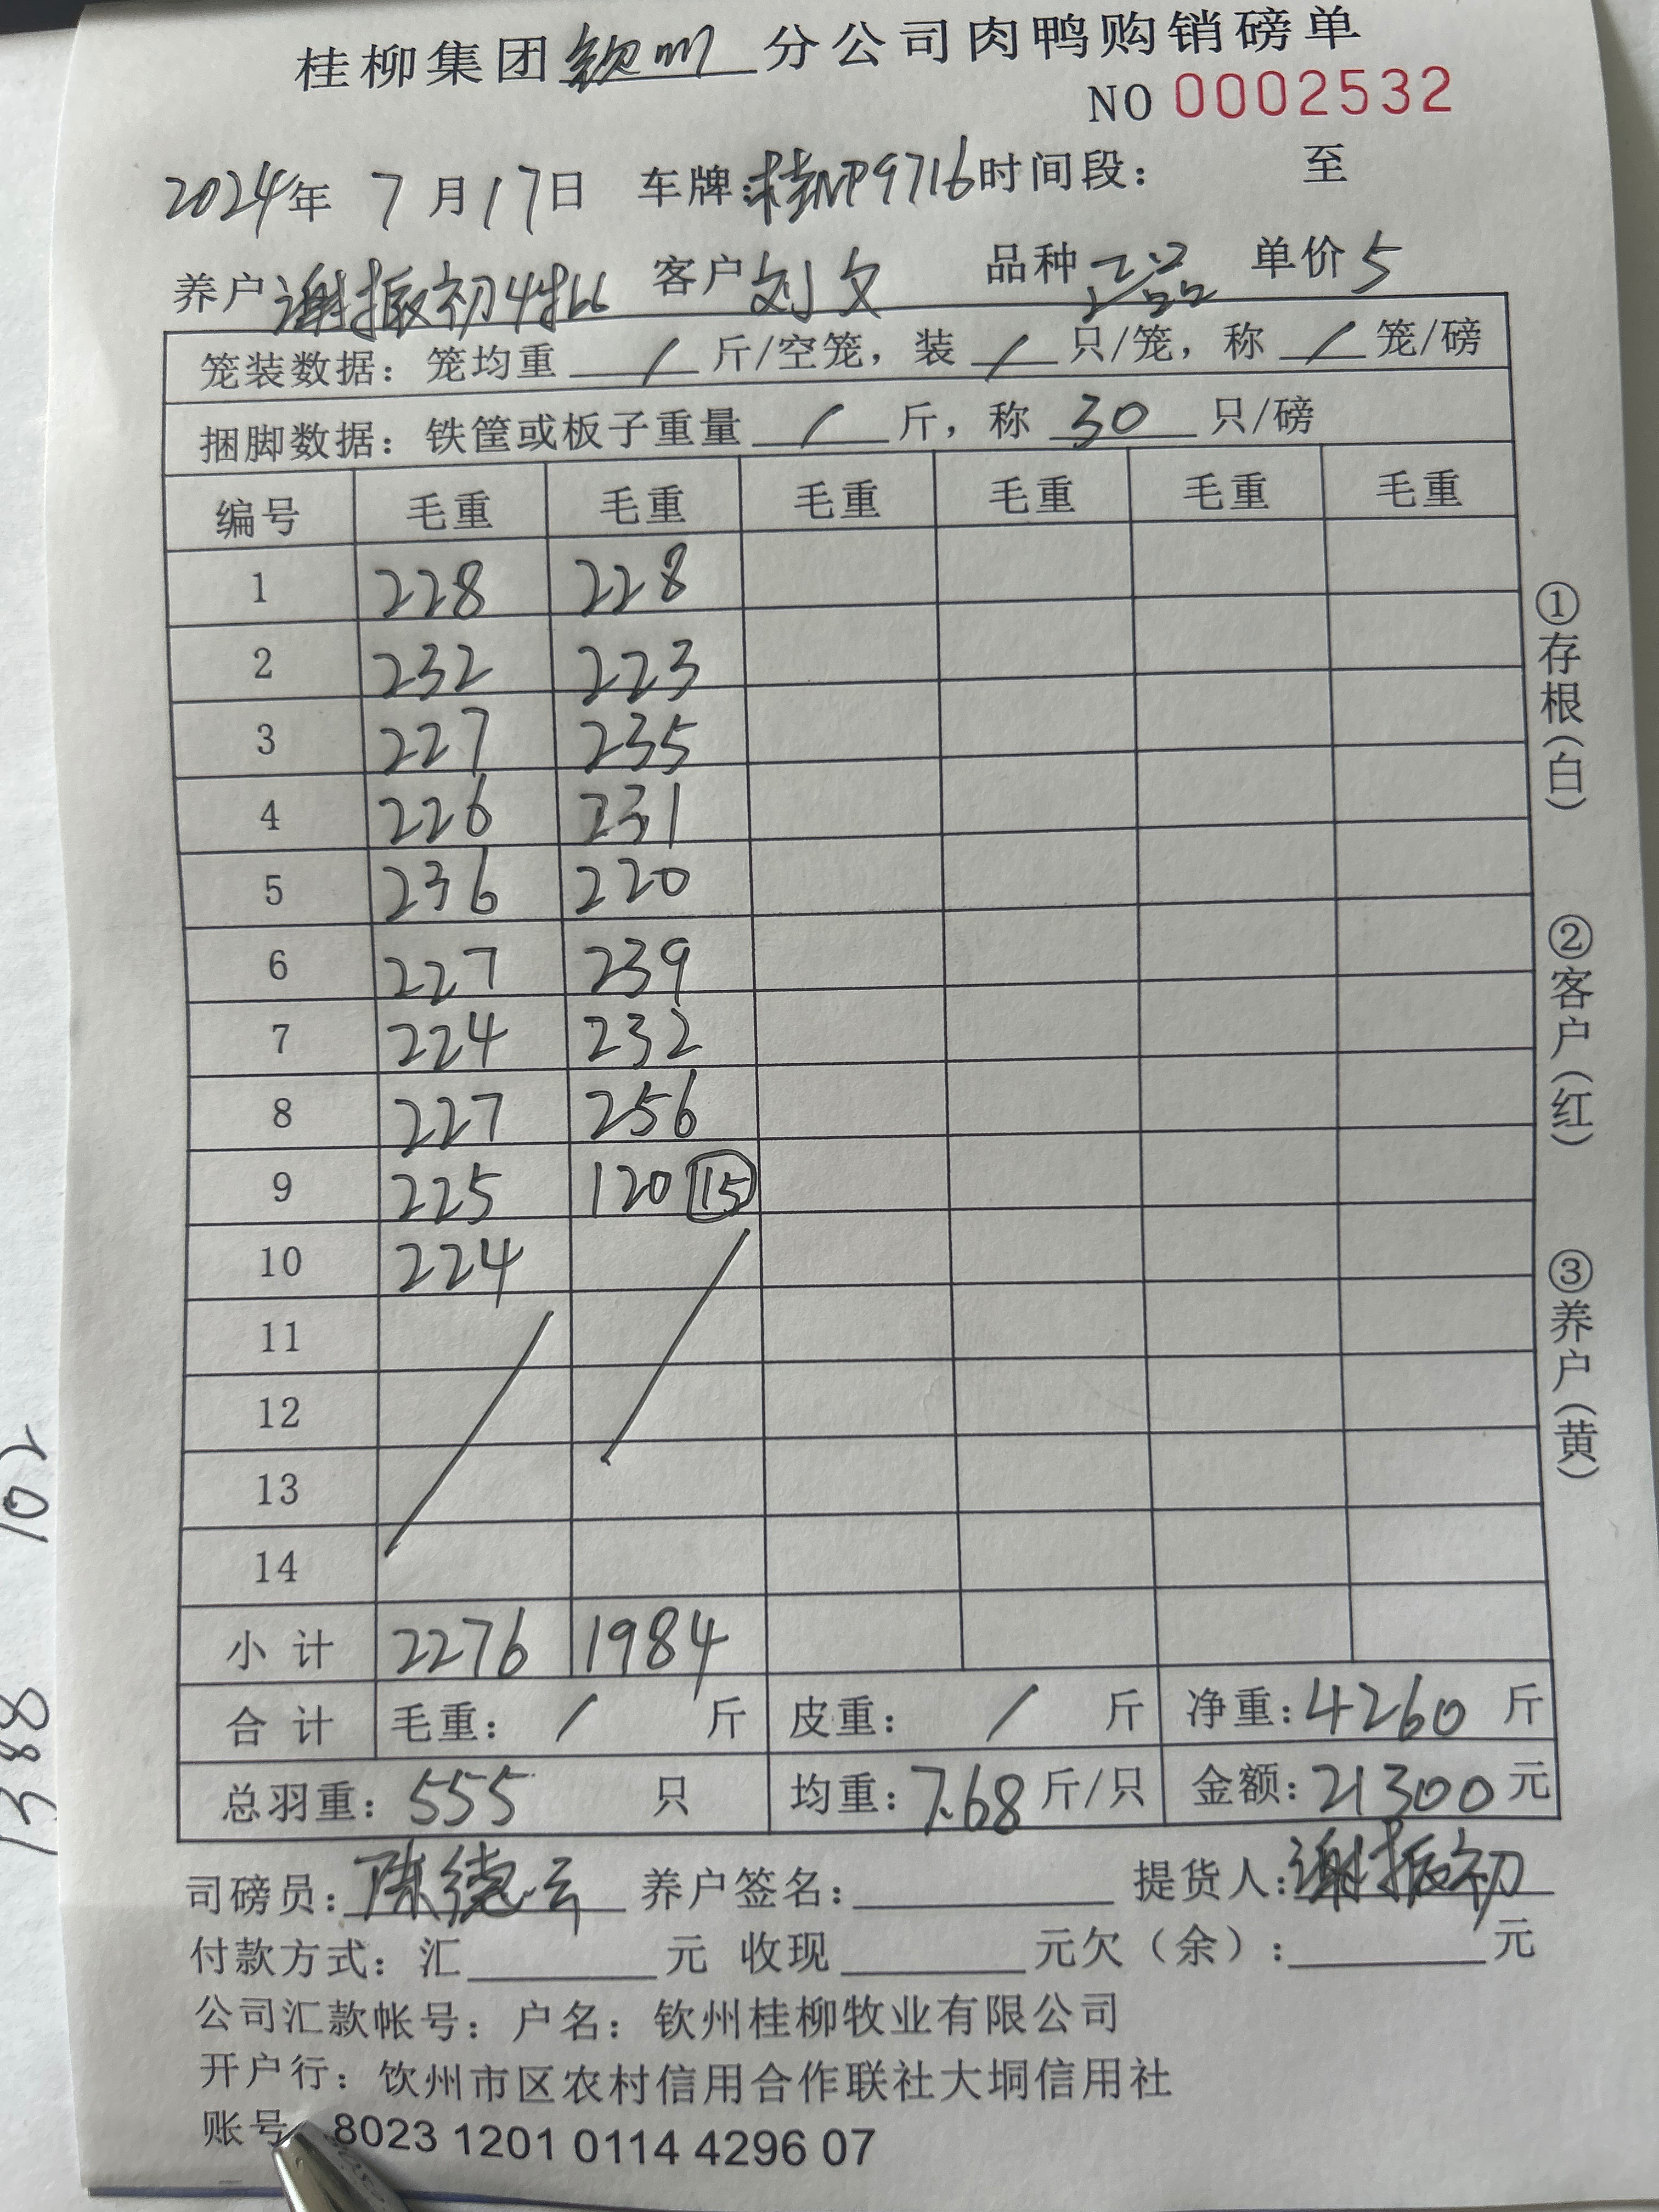 桂柳集团钦州分公司肉鸭购销磅单
NO 0002532
2024年 7月17日 车牌:桂NP9716时间段: 至
养户谢振初 客户刘文 品种 单价5
笼装数据: 笼均重 / 斤/空笼, 装 / 只/笼, 称 / 笼/磅
捆脚数据: 铁筐或板子重量 / 斤, 称 30 只/磅
编号 毛重 毛重 毛重 毛重 毛重 毛重
1 228 228
2 232 223
3 227 235
4 226 231
5 236 220
6 227 239
7 224 232
8 227 256
9 225 120 15
10 224
11
12
13
14
小计 2276 1984
合计 毛重: / 斤 皮重: / 斤 净重:4260 斤
总羽重: 555 只 均重:7.68斤/只 金额:21300元
司磅员:陈德云 养户签名: 提货人:谢振初
付款方式: 汇 元 收现 元欠(余): 元
公司汇款帐号: 户名: 钦州桂柳牧业有限公司
开户行: 钦州市区农村信用合作联社大垌信用社
账号 8023 1201 0114 4296 07
①存根(白)
②客户(红)
③养户(黄)
102
1388